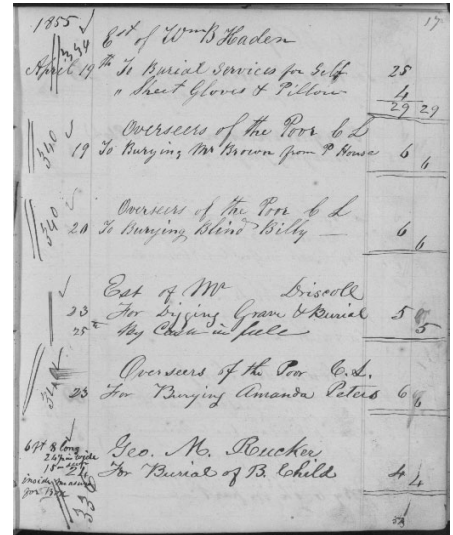 1855 17
Est of Wm B Haden
April 19th To Burial Services for Self 25
" Sheet Gloves & Pillow 4
29 29
Overseers of the Poor C L
340 19 To Burying Mr Brown from P House 6 6
Overseers of the Poor C L
340 20 To Burying Blind Billy 6 6
Est of Mr Driscoll
23 For Digging Grave & Burial 5
25th By Cash in full 5
Overseers of the Poor C. L.
23 For Burying Amanda Peters 6 6
Geo. M. Rucker
24 For Burial of B. Child 4 4